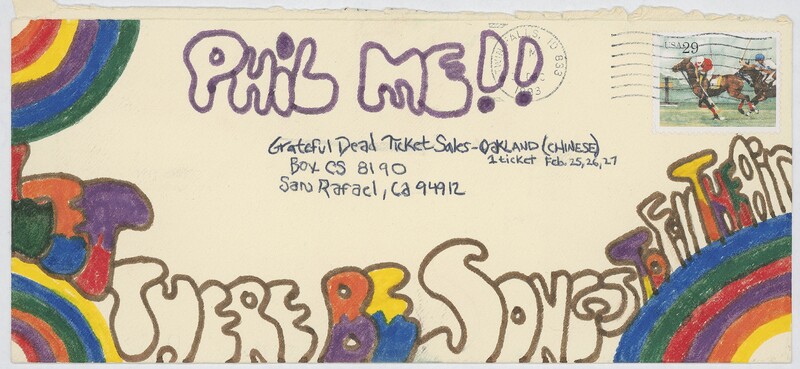 PHiL ME!!
FALLS, ID 833
1993
USA 29
Grateful Dead Ticket Sales - OAKLAND (CHINESE)
1 ticket Feb. 25, 26, 27
Box CS 8190
San Rafael, Ca 94912
LET THERE BE SONGS To Fill THE Air